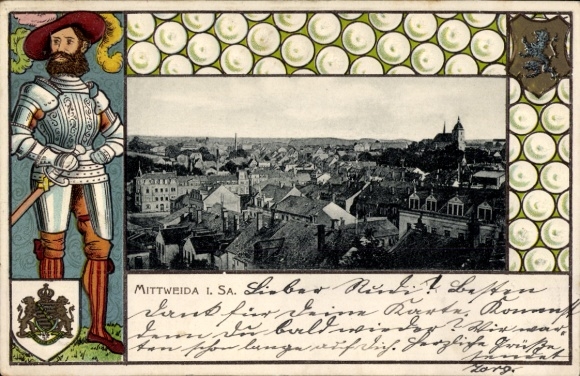 MITTWEIDA I. SA. Lieber Rudi! Besten
Dank für Deine Karte. Kommst
denn Du bald wieder? Wir war-
ten schon lange auf Dich. Herzliche Grüße
sendet